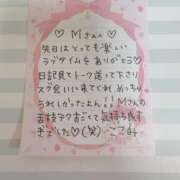 ♡ Mさん ♡
先日はとっても楽しい
ラブタイムをありがとう♡
日記見てトーク送って下さり
スグ会いに来てくれ めっちゃ
うれしかったよん!! Mさんの
舌技テク凄くって気持ち良す
ぎでした♡(笑)